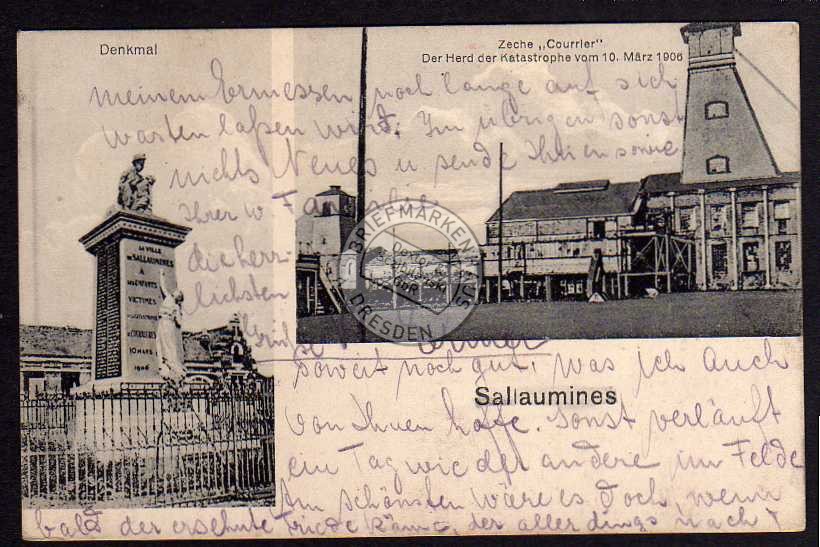 Denkmal
Zeche „Courrier"
Der Herd der Katastrophe vom 10. März 1906
meinem Ermessen noch lange auf sich
warten laßen wird. Im übrigen sonst
nichts Neues u sende Ihnen sowie
Ihrer w Familie
die herz-
lichsten
Grüße
LA VILLE
DE SALLAUMINES
A
SES ENFANTS
VICTIMES
DE LA CATASTROPHE
DE COURRIERES
10 MARS
1906
BRIEFMARKEN
DRESDEN
soweit noch gut, was ich auch
Sallaumines
von Ihnen hoffe. Sonst verläuft
ein Tag wie der andere im Felde
Am schönsten wäre es doch, wenn
bald der ersehnte Friede käme, der allerdings nach